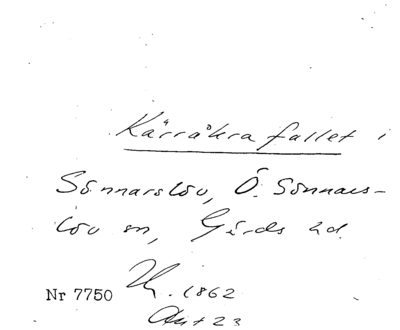 Kärråkra fallet i
Sönnarslöv, Ö. Sönnars-
löv sn, Gärds hd.
Nr 7750 1862
Akt 23